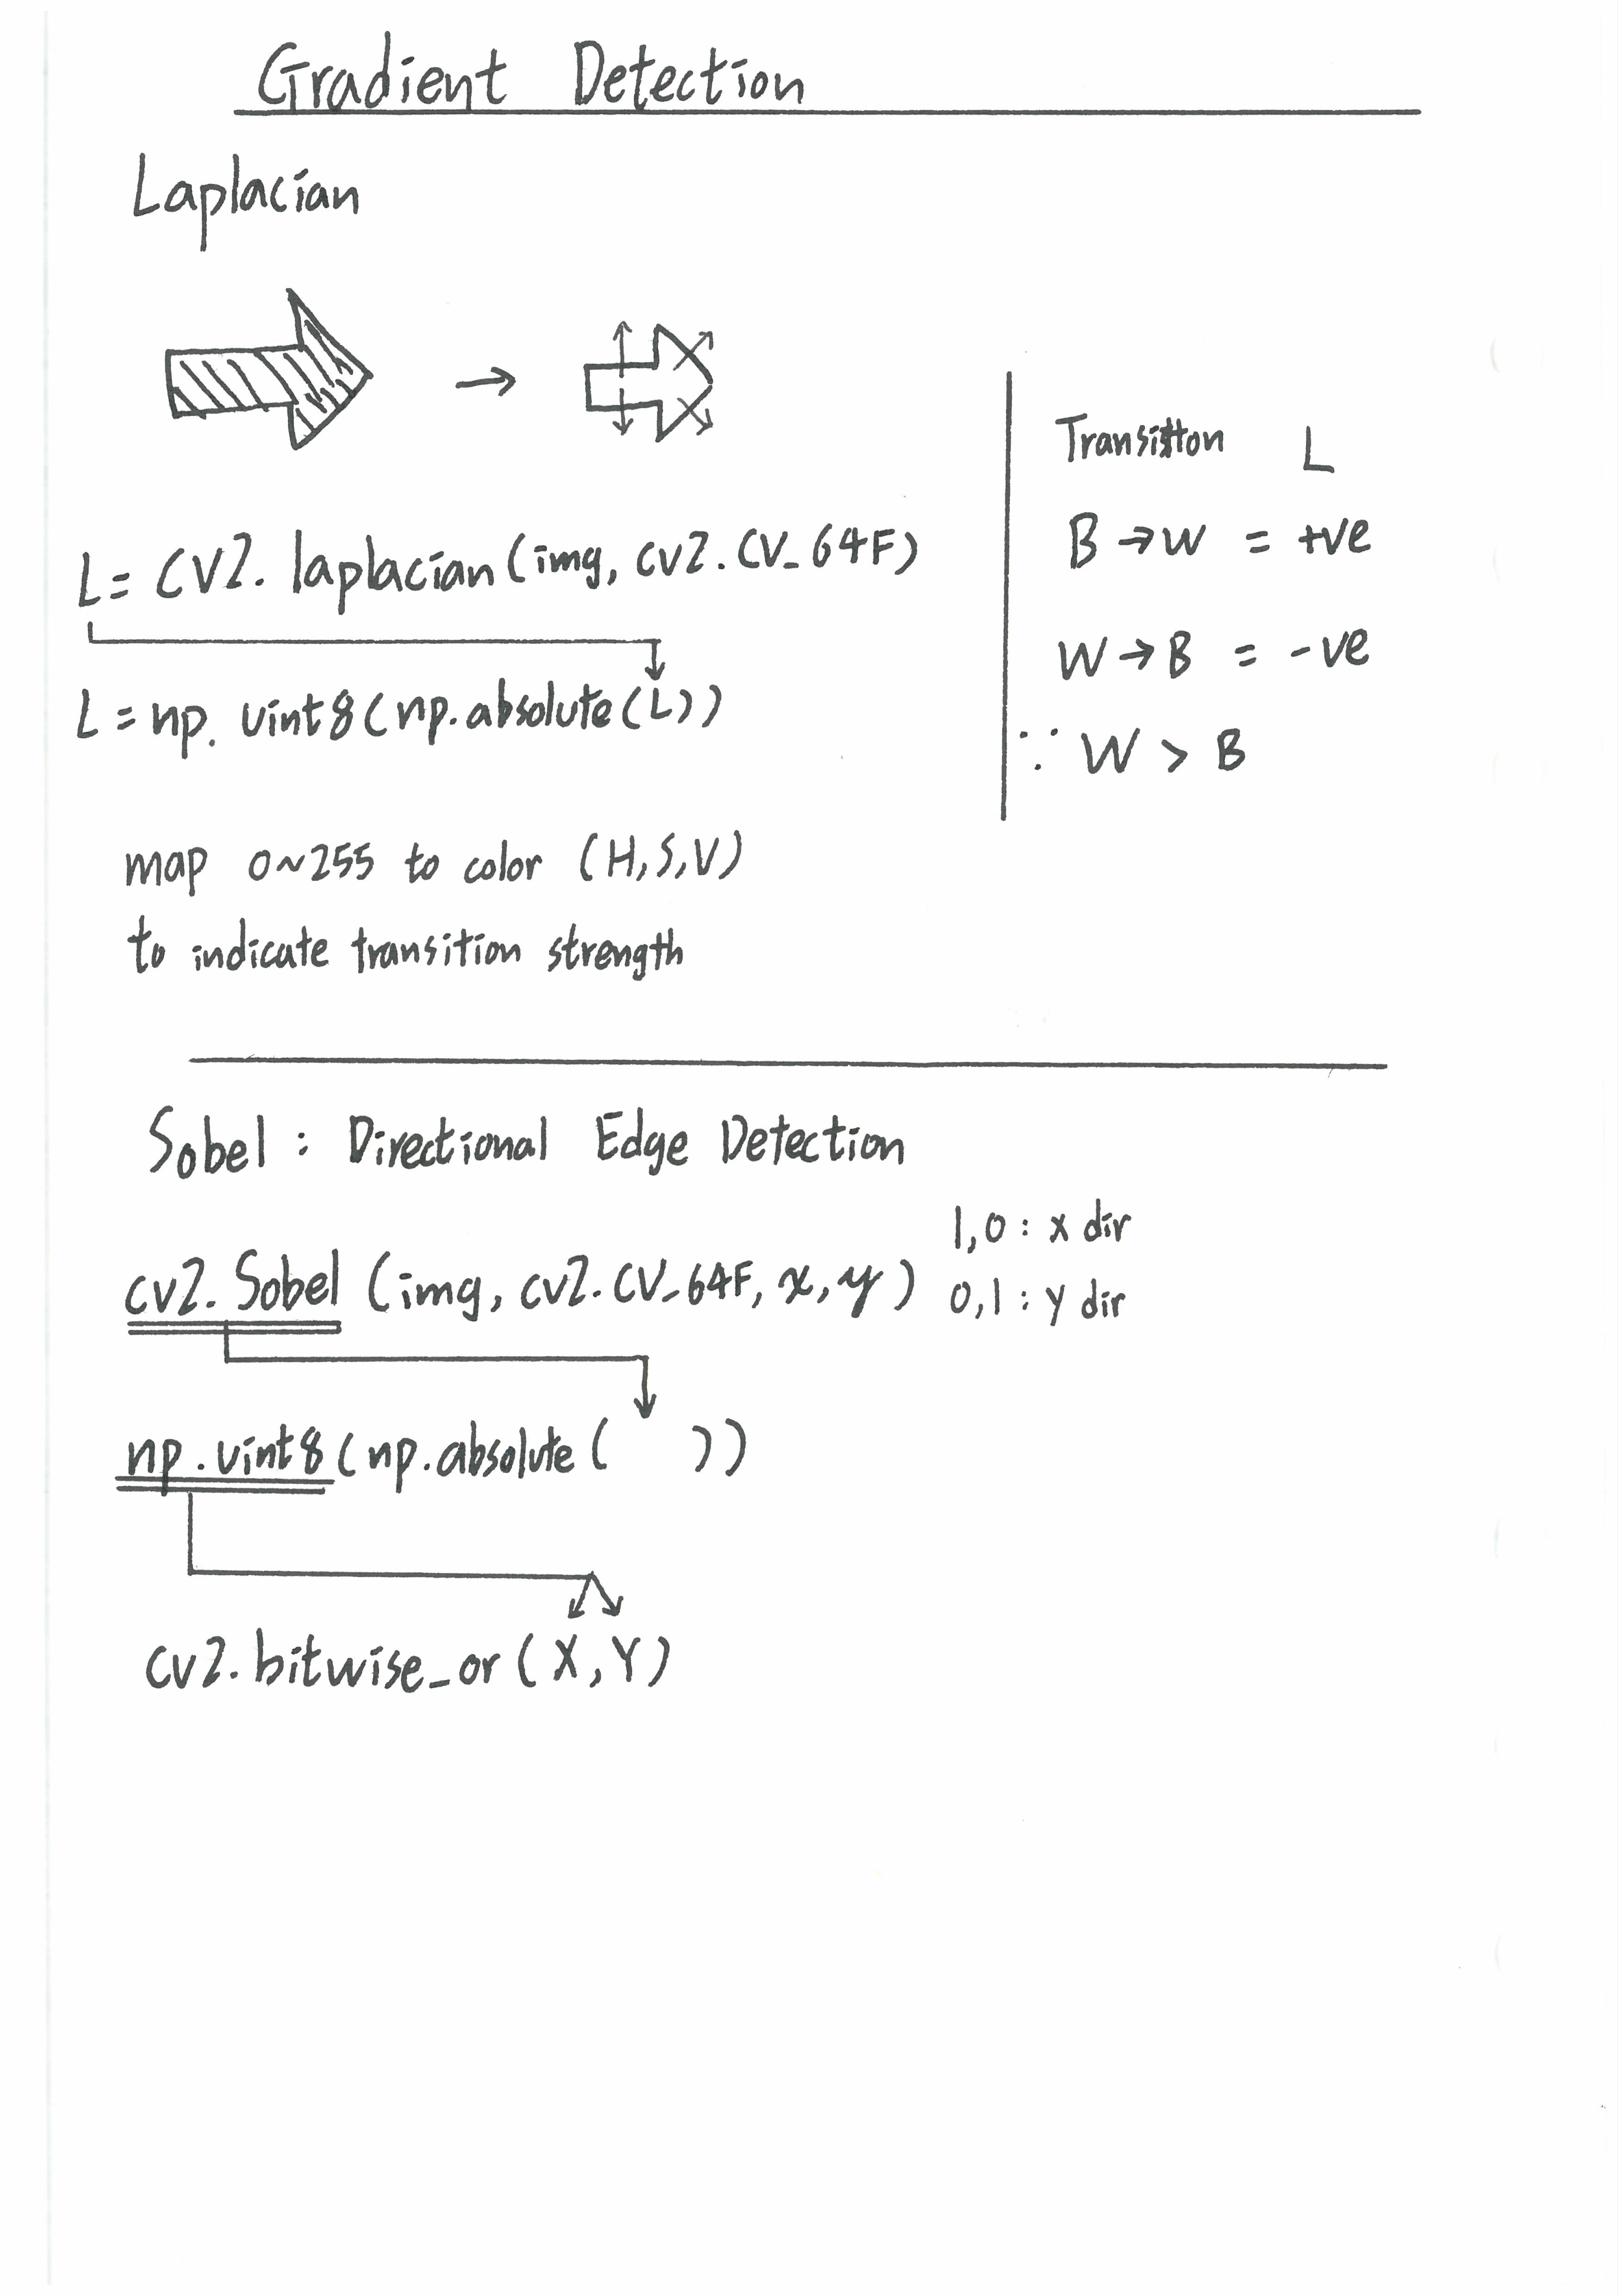 Gradient Detection
Laplacian
L = cv2. laplacian (img, cv2. CV_64F)
L = np. uint8 (np.absolute(L))
map 0~255 to color (H,S,V)
to indicate transition strength
Transition L
B → W = +ve
W → B = -ve
∵ W > B
Sobel : Directional Edge Detection
cv2. Sobel (img, cv2. CV_64F, x, y)
1,0 : x dir
0,1 : y dir
np.uint8 (np.absolute ( ))
cv2. bitwise_or (X, Y)